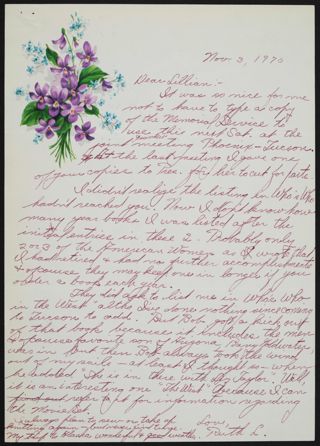 Nov. 3, 1970
Dear Lillian:-
It was so nice for me
not to have to type a copy
of the Memorial Service to
use this next Sat. at the
joint meeting Phoenix-Tucson.
At the last meeting I gave one
of your copies to Tess. for her to cut for parts
I didn't realize the listing in Who's Who
had it reached you. Now I don't know how
many year books I was listed after the
initial entries in these 2. Probably only
2 or 3 of the American Women as I wrote that
I had retired & had no further accomplishments
& of course they may keep one in longer if you
order a book each year.
They did ask to list me in Who's Who
in the West also. I've done nothing since coming
to Tucson to add. But Bob got a kick out
of that book because it includes the men
& of course favorite son of Arizona, Barry Goldwater,
was in. But then Bob always took the wind
out of my sails - at least I thought so - when
he added "She is in there with Liz Taylor". Well,
it is an interesting one "the West" because I can
find out refer to it for information regarding
the
I always plan to new or take up
writing again
my trip to Alaska wonderful & good weather.
Love,
Ruth L.